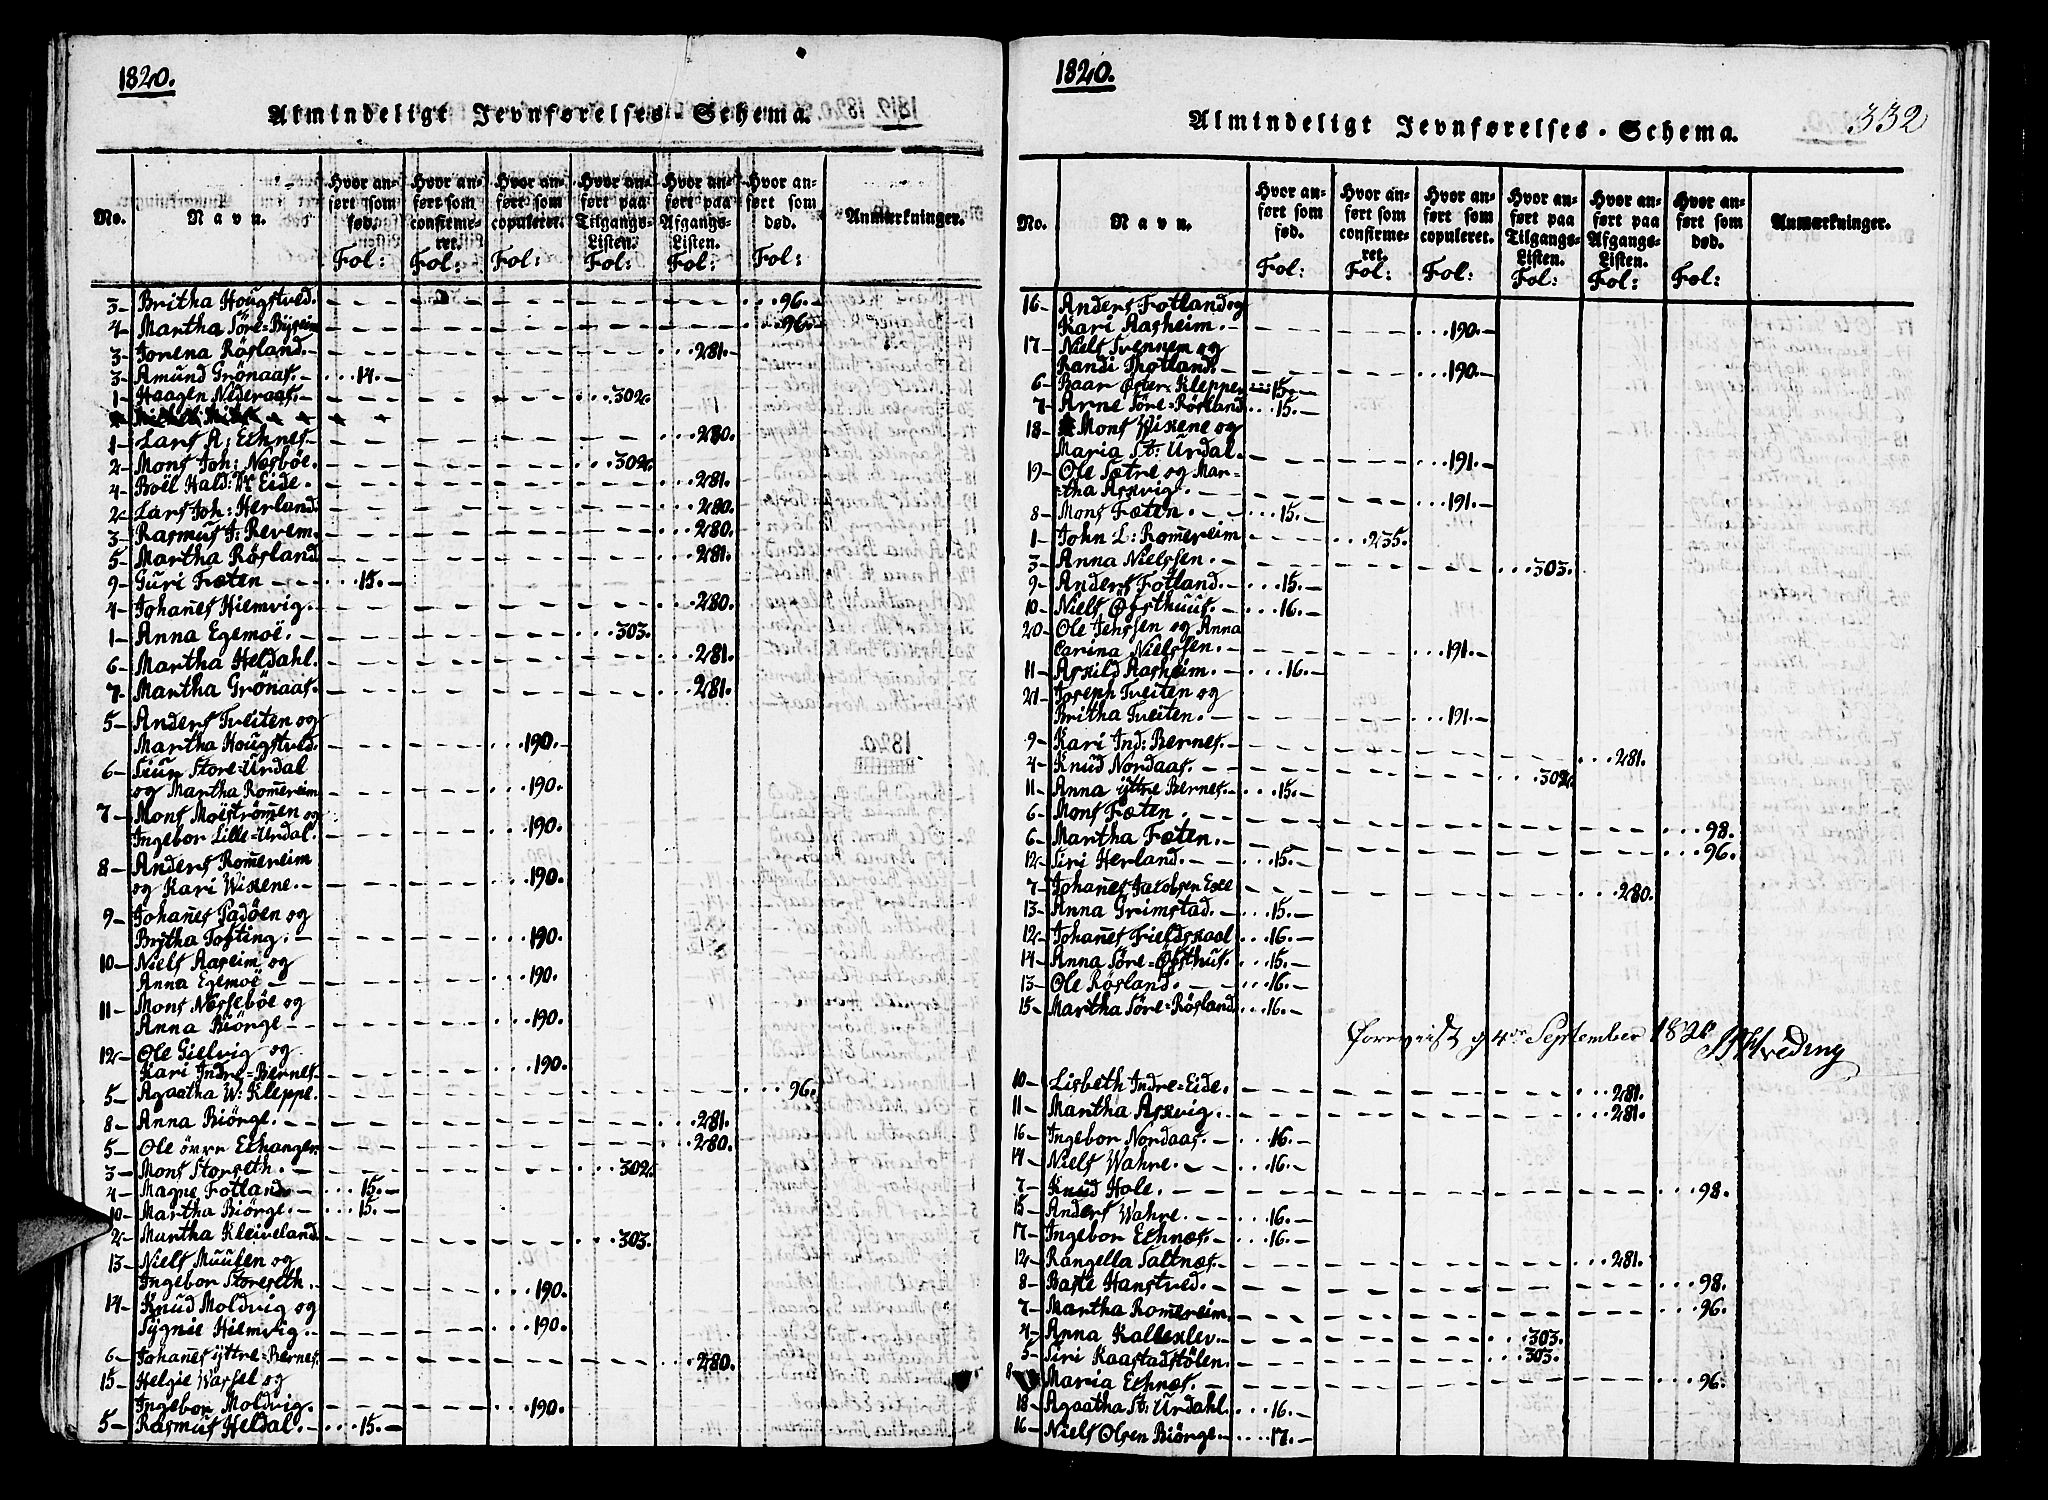 1820.
Almindeligt Jevnførelses-Schema.
No.
Navn.
Hvor anført som fød. Fol:
Hvor anført som confirmeret. Fol:
Hvor anført som copuleret. Fol:
Hvor anført paa Tilgangs-Listen. Fol:
Hvor anført paa Afgangs-Listen. Fol:
Hvor anført som død. Fol:
Anmærkninger.
3 - Britha Hougstved. 96.
4 - Martha Söre=Byseim 96.
3 - Sorena Rösland. 281.
3 - Amund Grönaas. 14.
1 - Haagen Nederaas. 302.
1 - Lars A: Echnes 280.
2 - Mons Joh: Nesböe. 302.
4 - Boël Hald: Eide. 281.
2 - Lars Joh: Herland. 280.
3 - Rasmus J: Revem. 280.
5 - Martha Rösland 281.
9 - Guri Fæten 15.
4 - Johanes Hiemvig. 280.
1 - Anna Egemoë. 303.
6 - Martha Heldahl. 281.
7 - Martha Grönaas. 281.
5 - Anders Tveiten og
Martha Hougstved. 190.
6 - Siur Store=Urdal
og Martha Romereim 190.
7 - Mons Moëströmen og
Ingebor Lille=Urdal. 190.
8 - Anders Romereim
og Kari Wikene. 190.
9 - Johanes Padöen og
Britha Tofting. 190.
10 - Niels Aaseim og
Anna Egemoë 190.
11 - Mons Nesseböe og
Anna Biörge 190.
12 - Ole Gielvig og
Kari Indre=Bernes 190.
5 - Agaatha W: Kleppe. 96.
8 - Anna Biörge. 281.
5 - Ole övre Echanger 280.
3 - Mons Storseth. 302.
4 - Magne Fotland 15.
10 - Martha Biörge. 15.
2 - Martha Kleiveland. 303.
13 - Niels Muusen og
Ingebor Storeseth. 190.
14 - Knud Moldvig og
Sygnie Hiemvig. 190.
6 - Johanes yttre=Bernes. 280.
15 - Helgie Wassel og
Ingebor Moldvig. 190.
5 - Rasmus Heldal. 15.
1820.
332
Almindeligt Jevnførelses-Schema.
No.
Navn.
Hvor anført som fød. Fol:
Hvor anført som confirmeret. Fol:
Hvor anført som copuleret. Fol:
Hvor anført paa Tilgangs-Listen. Fol:
Hvor anført paa Afgangs-Listen. Fol:
Hvor anført som død. Fol:
Anmærkninger.
16 - Anders Fotland og
Kari Aasheim. 190.
17 - Niels Svennem og
Randi Thotland. 190.
6 - Baar Öster Kleppe 15.
7 - Arne Söre=Rösland 15.
18 - Mons Wikene og
Maria St: Urdal. 191.
19 - Ole Sætre og Mar=
=tha Askvig. 191.
8 - Mons Fæten. 15.
1 - John L: Romereim 235.
3 - Anna Nielssen. 303.
9 - Anders Fotland. 15.
10 - Niels Össthuus. 16.
20 - Ole Jenssen og Anna
Carina Nielssen. 191.
11 - Askild Aasheim. 16.
21 - Joseph Tveiten og
Britha Tveiten. 191.
9 - Kari Ind: Bernes. 281.
4 - Knud Nordaas. 302.
11 - Anna yttre Bernes. 15.
6 - Mons Fæten. 98.
6 - Martha Fæten. 96.
12 - Siri Herland. 15.
7 - Johanes Jacobsen 280.
13 - Anna Grimstad. 15.
12 - Johanes Fieldskaal 16.
14 - Anna Söre=Össthus. 15.
13 - Ole Rösland. 16.
15 - Martha Söre=Rösland. 16.
4de September 1820
10 - Lisbeth Indre=Eide. 281.
11 - Martha Askvig. 281.
16 - Ingebor Nordaas. 16.
14 - Niels Wahre. 16.
7 - Knud Hole. 98.
15 - Anders Wahre. 16.
17 - Ingebor Echnæs. 16.
12 - Rangella Saltnæs. 281.
8 - Baste Hanstved. 98.
7 - Martha Romereim. 96.
4 - Anna Kalleklev. 303.
5 - Siri Kaastadstölen. 303.
8 Maria Echnæs. 96.
18 - Agaatha St: Urdahl. 16.
16 - Niels Olsen Biörge. 17.